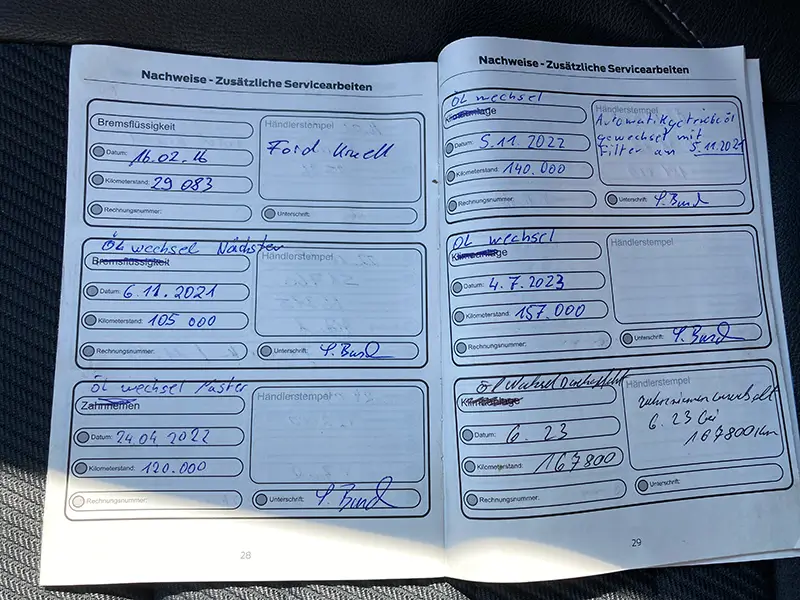 Nachweise - Zusätzliche Servicearbeiten
Bremsflüssigkeit
Händlerstempel
Ford Knell
Datum: 16.02.16
Kilometerstand: 29 083
Rechnungsnummer:
Unterschrift:
Öl wechsel Nächster
Bremsflüssigkeit
Händlerstempel
Datum: 6.11.2021
Kilometerstand: 105 000
Rechnungsnummer:
Unterschrift:
ÖL wechsel
Zahnriemen
Händlerstempel
Datum: 24.04 2022
Kilometerstand: 120.000
Rechnungsnummer:
Unterschrift:
28
Nachweise - Zusätzliche Servicearbeiten
ÖL wechsel
Klimaanlage
Händlerstempel
Automatikgetriebeöl
gewechselt mit
Filter an 5.11.2021
Datum: 5.11.2022
Kilometerstand: 140.000
Rechnungsnummer:
Unterschrift:
ÖL wechsel
Klimaanlage
Händlerstempel
Datum: 4.7.2023
Kilometerstand: 157.000
Rechnungsnummer:
Unterschrift:
Öl Wechsel
Klimaanlage
Händlerstempel
6.23 bei
167800 Km
Datum: 6. 23
Kilometerstand: 167800
Rechnungsnummer:
Unterschrift:
29